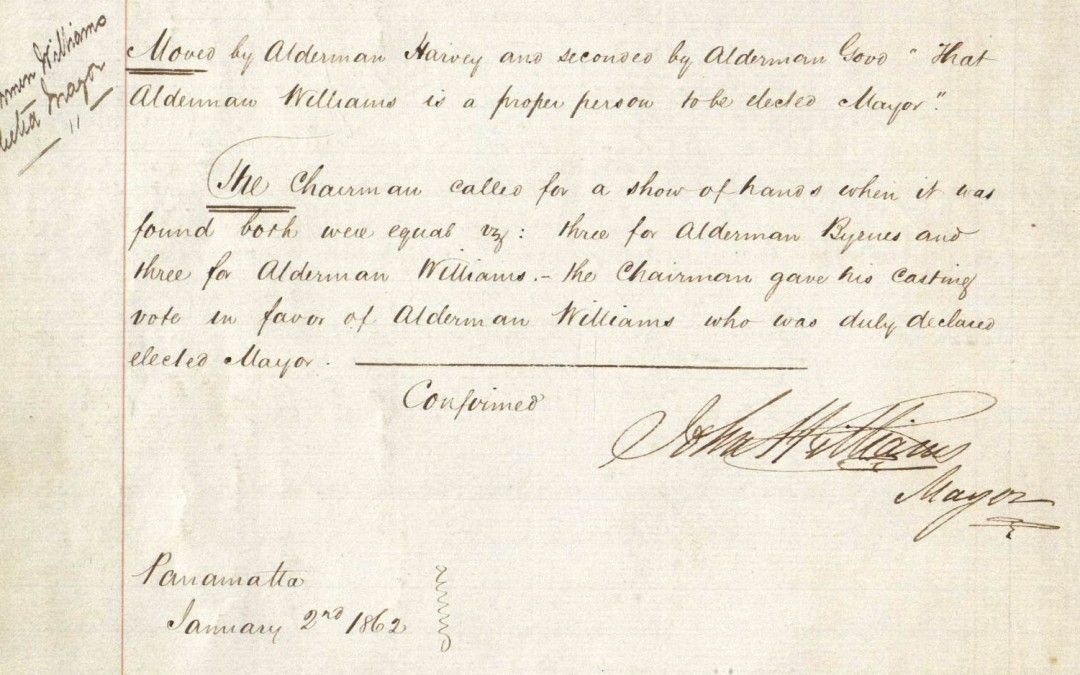 Williams
Mayor
Moved by Alderman Harvey and seconded by Alderman Good " That
Alderman Williams is a proper person to be elected Mayor".
The Chairman called for a show of hands when it was
found both were equal viz: three for Alderman Byrnes and
three for Alderman Williams.- the Chairman gave his casting
vote in favor of Alderman Williams who was duly declared
elected Mayor.
Confirmed
John Williams
Mayor
Parramatta
January 2nd 1862